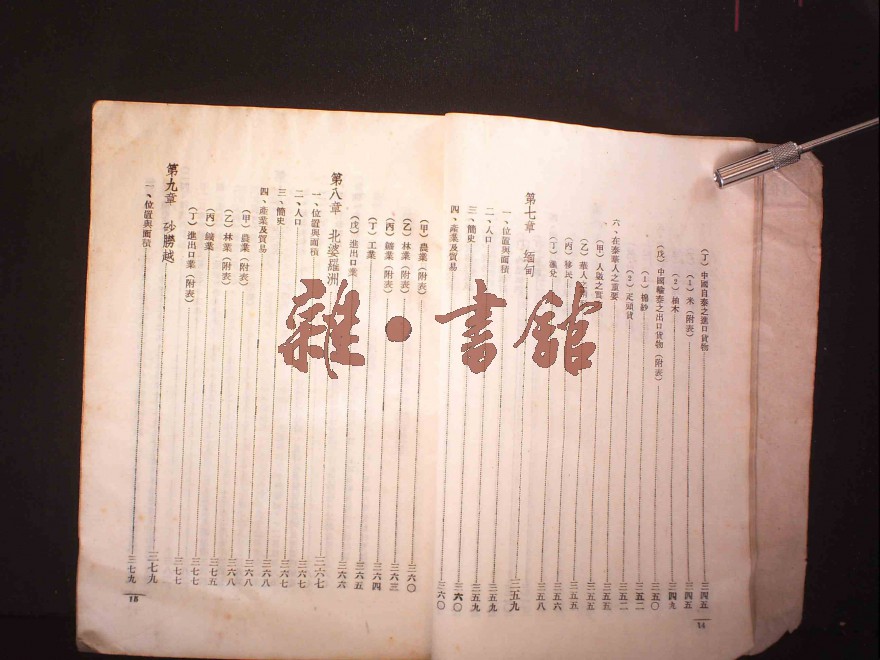 (丁)中國自泰之進口貨物 三四五
(1)米(附表) 三四五
(2)柚木 三四九
(戊)中國輸泰之出口貨物(附表) 三五〇
(1)棉紗 三五二
(2)疋頭貨 三五二
六、在泰華人之重要 三五五
(甲)人數之 三五五
(乙)華人之 三五五
(丙)移民 三五六
(丁)滙兌 三五八
第七章 緬甸 三五九
一、位置與面積 三五九
二、人口 三五九
三、簡史 三六〇
四、產業及貿易 三六〇
14
(甲)農業(附表) 三六〇
(乙)林業(附表) 三六三
(丙)鑛業(附表) 三六四
(丁)工業 三六五
(戊)進出口業 三六六
第八章 北婆羅洲 三六七
一、位置與面積 三六七
二、人口 三六七
三、簡史 三六七
四、產業及貿易 三六八
(甲)農業(附表) 三六八
(乙)林業(附表) 三七五
(丙)鑛業 三七七
(丁)進出口業(附表) 三七七
第九章 砂朥越 三七九
一、位置與面積 三七九
15
雜·書館